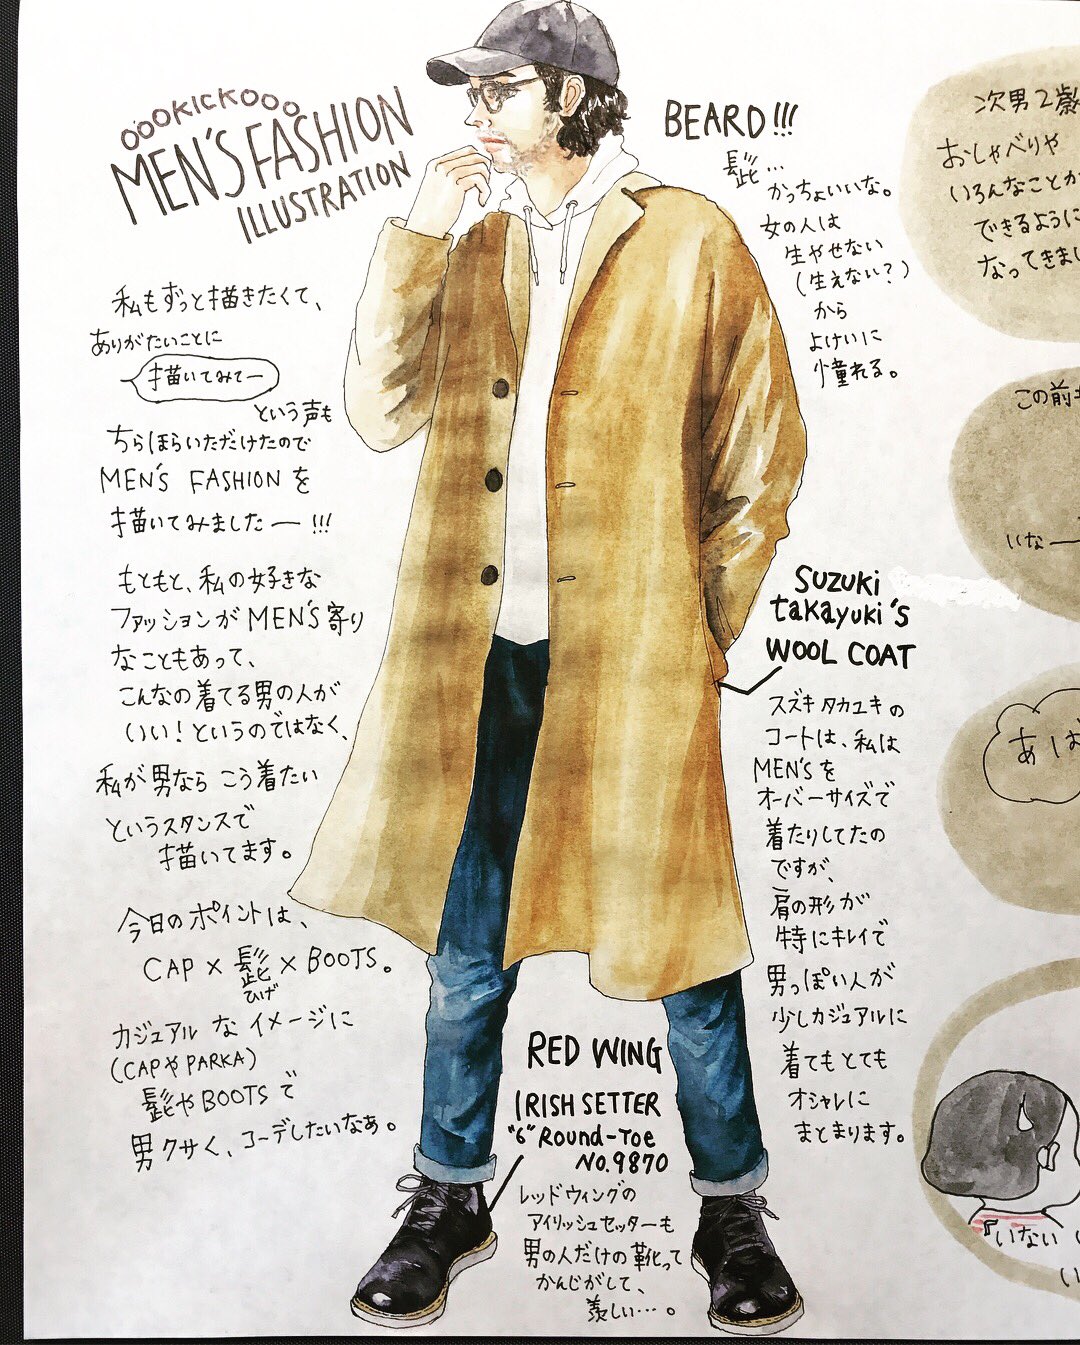 OOOKICKOOO
MEN'S FASHION
ILLUSTRATION
私もずっと描きたくて、
ありがたいことに
描いてみてー
という声も
ちらほらいただけたので
MEN'S FASHIONを
描いてみましたー!!!
もともと、私の好きな
ファッションがMEN'S寄り
なこともあって、
こんなの着てる男の人が
いい!というのではなく、
私が男なら こう着たい
というスタンスで
描いてます。
今日のポイントは、
CAP×髭×BOOTS。
ひげ
カジュアルなイメージに
(CAPやPARKA)
髭やBOOTSで
男クサく、コーデしたいなぁ。
BEARD!!!
髭…
かっちょいいな。
女の人は
生やせない
(生えない?)
から
よけいに
憧れる。
SUZUKI
takayuki's
WOOL COAT
スズキタカユキの
コートは、私は
MEN'Sを
オーバーサイズで
着たりしてたの
ですが、
肩の形が
特にキレイで
男っぽい人が
少しカジュアルに
着てもとても
オシャレに
まとまります。
RED WING
IRISH SETTER
"6" Round-Toe
No.9870
レッドウィングの
アイリッシュセッターも
男の人だけの靴って
かんじがして、
羨しい…。
次男2歳
おしゃべりや
いろんなことが
できるように
なってきまし
この前
いなー
あば
『いない
い